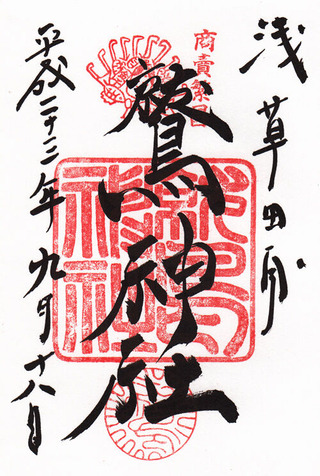 浅草田甫
商賣繁昌
鷲神社
平成二十三年九月十八日